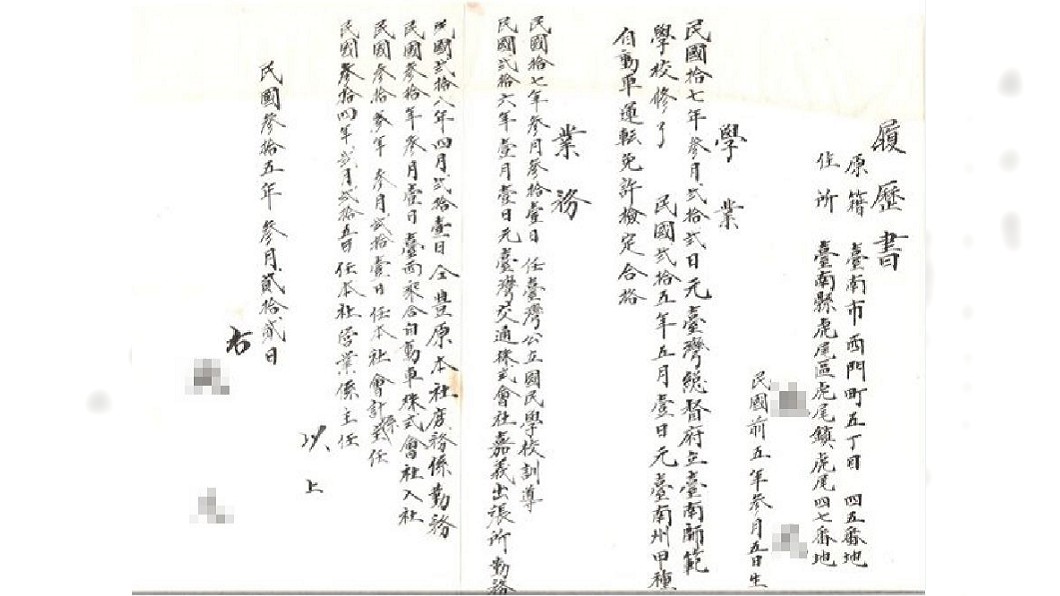 履歷書
原籍 臺南市西門町五丁目四五番地
住所 臺南縣虎尾區虎尾鎮虎尾四七番地
民國前五年參月五日生
學業
民國拾七年參月弍拾弍日元臺灣總督府立臺南師範
學校修了 民國弍拾五年五月壹日元臺南州甲種
自動車運転免許檢定合格
業務
民國拾七年參月參拾壹日任臺灣公立國民學校訓導
民國弍拾六年壹月壹日元臺灣交通株式會社嘉義出張所勤務
民國弍拾八年四月弍拾壹日仝豊原本社庶務係勤務
民國參拾年參月壹日臺西乘合自動車株式會社入社
民國參拾參年參月弍拾壹日任本社會計係主任
民國參拾四年弍月弍拾五日任本社營業係主任
以上
民國參拾五年參月貳拾弍日
右